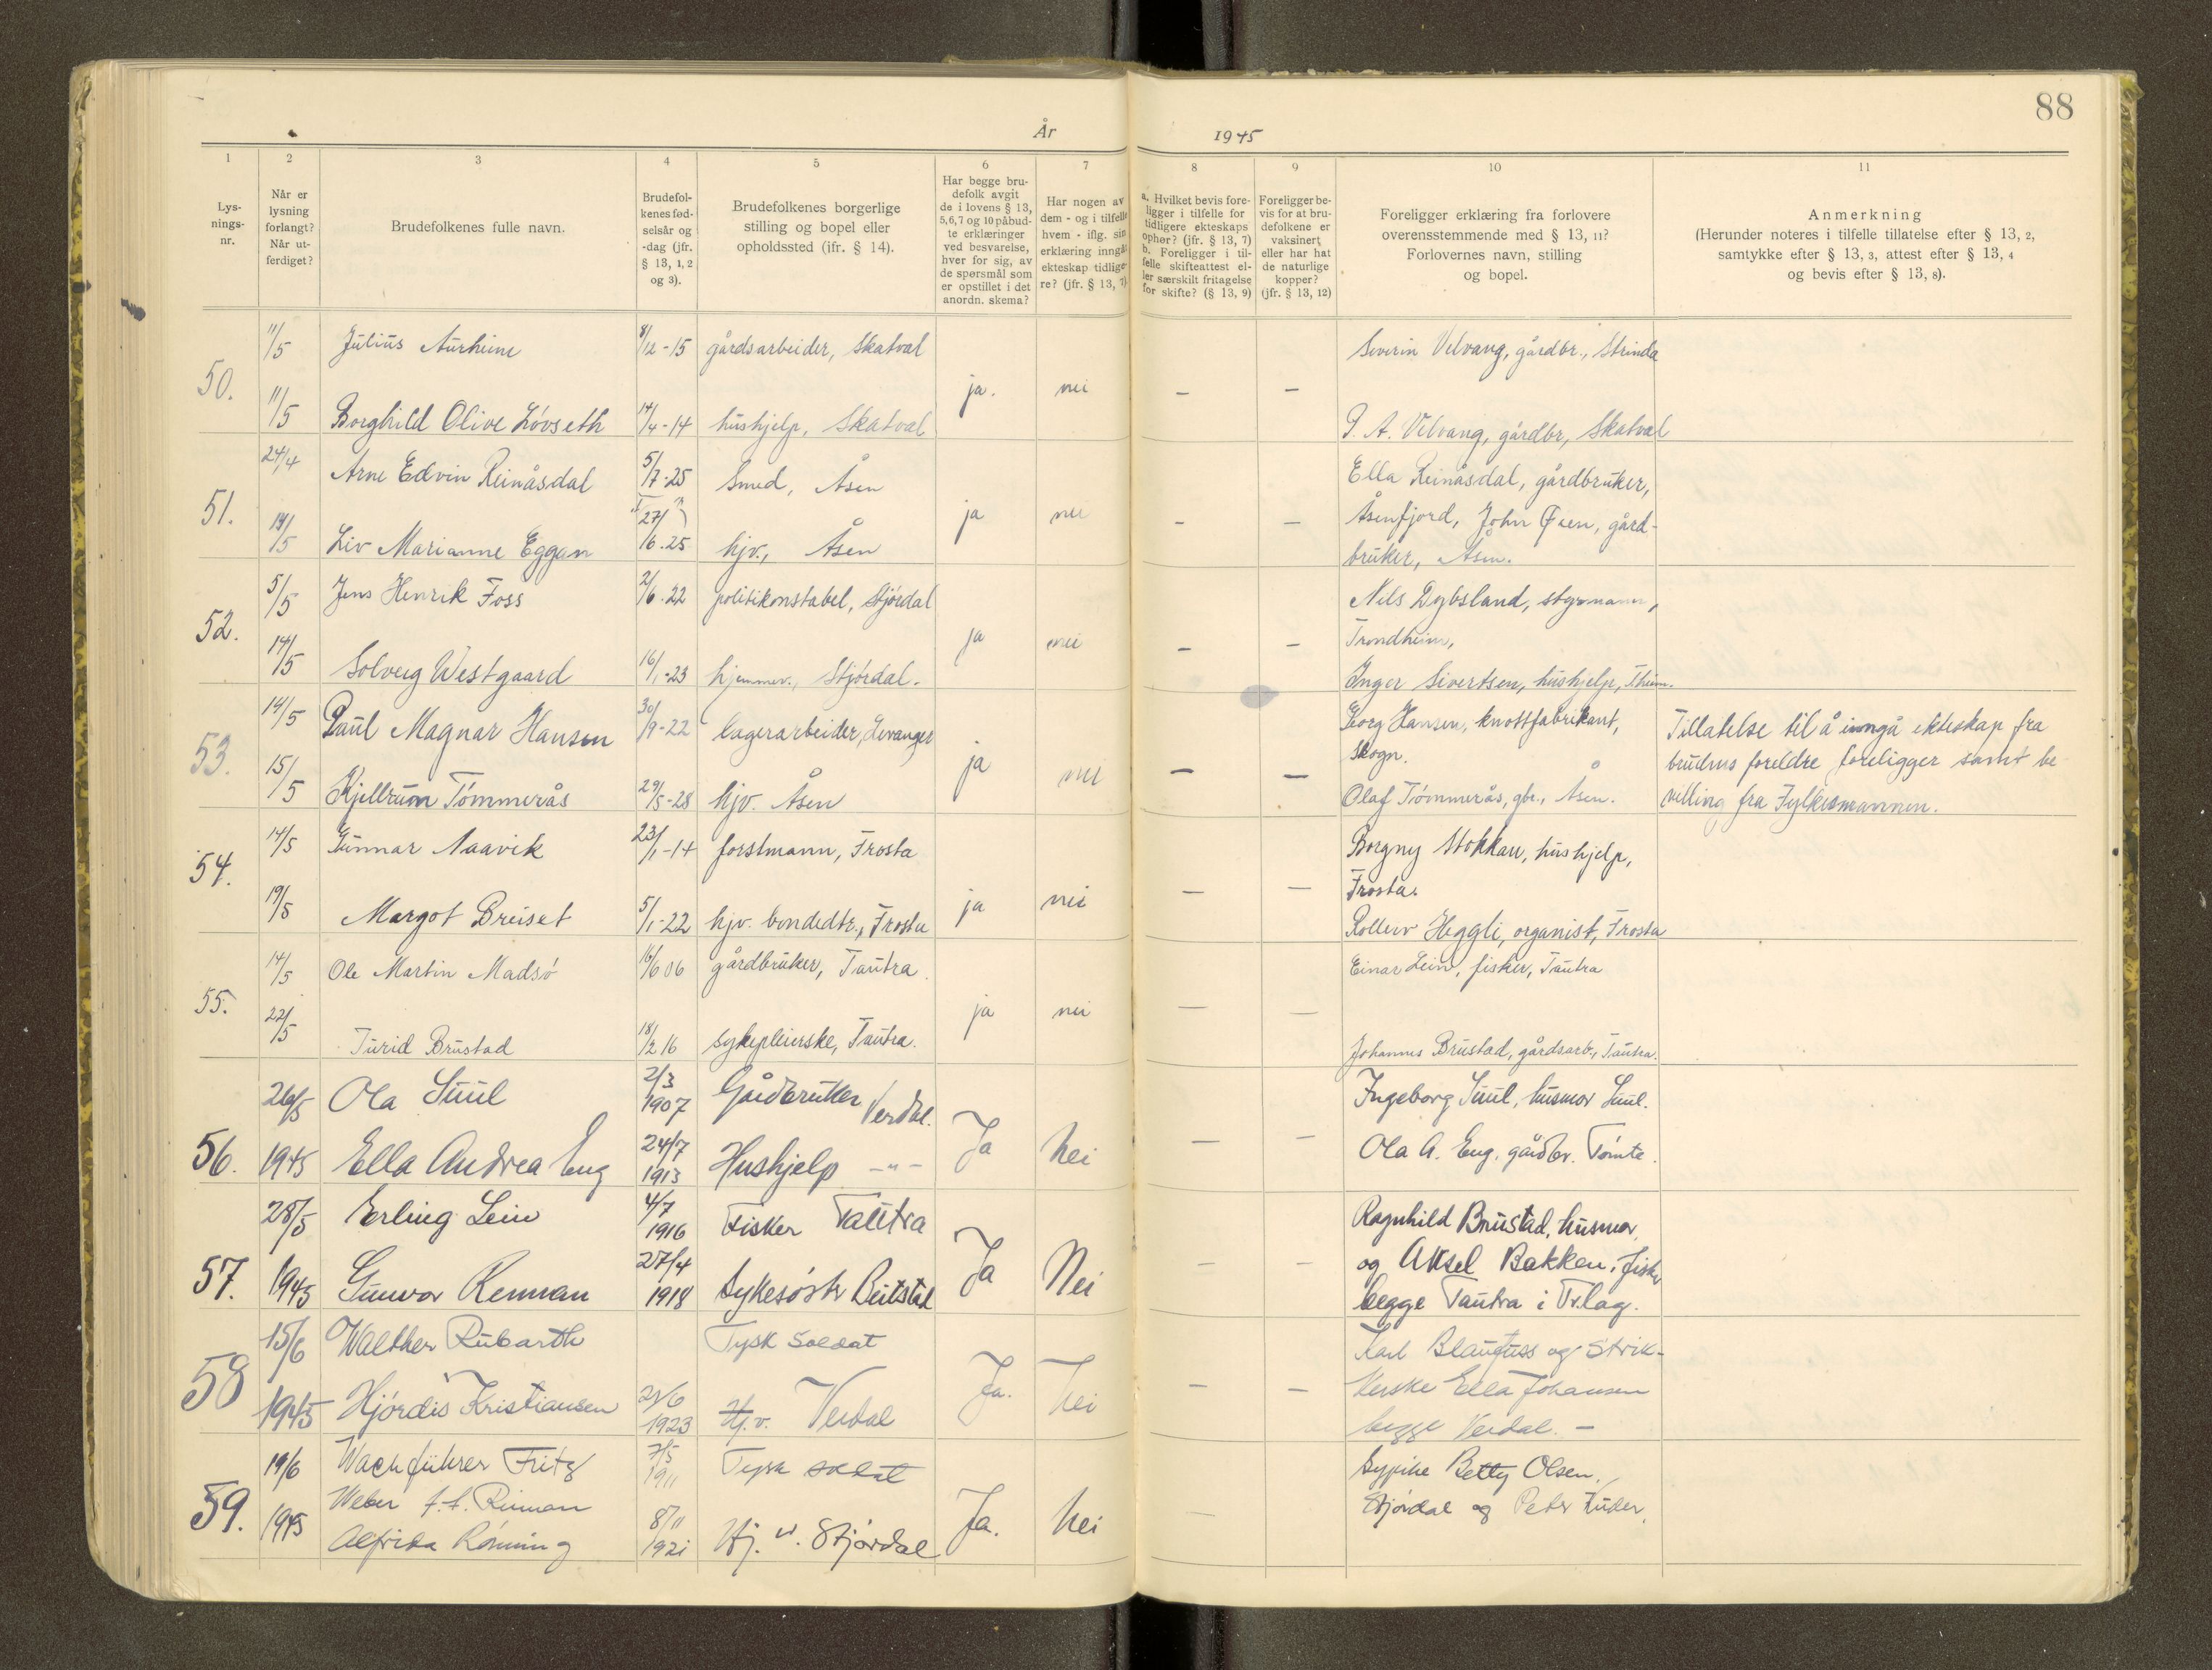 88
År 1945
1 2 3 4 5 6 7 8 9 10 11
Lys-
nings-
nr.
Når er
lysning
forlangt?
Når ut-
ferdiget?
Brudefolkenes fulle navn.
Brudefol-
kenes fød-
selsår og
-dag (jfr.
§ 13, 1, 2
og 3).
Brudefolkenes borgerlige
stilling og bopel eller
opholdssted (jfr. § 14).
Har begge bru-
defolk avgit
de i lovens § 13,
5,6,7 og 10 påbud-
te erklæringer
ved besvarelse,
hver for sig, av
de spørsmål som
er opstillet i det
anordn. skema?
Har nogen av
dem - og i tilfelle
hvem - iflg. sin
erklæring inngåt
ekteskap tidlige-
re? (jfr. § 13, 7)
a. Hvilket bevis fore-
ligger i tilfelle for
tidligere ekteskaps
ophør? (jfr. § 13, 7)
b. Foreligger i til-
felle skifteattest el-
ler særskilt fritagelse
for skifte? (§ 13, 9)
Foreligger be-
vis for at bru-
defolkene er
vaksinert
eller har hat
de naturlige
kopper?
(jfr. § 13, 12)
Foreligger erklæring fra forlovere
overensstemmende med § 13, 11?
Forlovernes navn, stilling
og bopel.
Anmerkning
(Herunder noteres i tilfelle tillatelse efter § 13, 2,
samtykke efter § 13, 3, attest efter § 13, 4
og bevis efter § 13, 8).
11/5 Julius Aurheim 8/12-15 gårdsarbeider, Skatval Severin Velvang, gårdbr., Strinda
50. ja. nei – –
11/5 Borghild Olive Løvseth 14/4-14 hushjelp, Skatval P. A. Velvang, gårdbr, Skatval
24/4 Arne Edvin Reinåsdal 5/7-25 Smed, Åsen Ella Reinåsdal, gårdbruker,
51. ja nei – – Åsenfjord, John Øien, gård-
14/5 Liv Marianne Eggan 27/6.25 hjv., Åsen bruker, Åsen.
5/5 Jens Henrik Foss 2/6.22 politikonstabel, Stjørdal Nils Dybsland, styrmann,
52. ja nei – – Trondheim,
14/5 Solveig Westgaard 16/1-23 hjemmev., Stjørdal. Inger Sivertsen, hushjelp, Thum.
14/5 Paul Magnar Hansen 30/9-22 lagerarbeider, Levanger Georg Hansen, knottfabrikant, Tillatelse til å inngå ekteskap fra
53. ja nei – – Skogn. brudens foreldre foreligger samt be
15/5 Kjellrun Tømmerås 29/5-28 hjv. Åsen Olaf Tømmerås, gbr., Åsen. villing fra Fylkesmannen.
14/5 Gunnar Naavik 23/1-14 forstmann, Frosta Borgny Stokkan, hushjelp,
54. ja nei – – Frosta.
19/5 Margot Breiset 5/1-22 hjv. bondedtr., Frosta Rolleiv Heggli, organist, Frosta
14/5 Ole Martin Madsø 16/6 06 gårdbruker, Tautra. Einar Lein, fisker, Tautra
55. ja nei – –
22/5 Turid Brustad 18/2 16 sykepleierske, Tautra. Johannes Brustad, gårdsarb., Tautra.
26/5 Ola Suul 2/3 1907 Gårdbruker Verdal. Ingeborg Suul, husmor Suul.
56. 1945 Ella Andrea Eng 24/7 1913 Hushjelp –"– Ja Nei – – Ola A. Eng, gårdbr. Tomte.
28/5 Erling Lein 4/7 1916 Fisker Tautra Ragnhild Brustad, husmor,
57. Ja Nei – – og Aksel Bakken, fisker
1945 Gunvor Renman 27/4 1918 Sykesøster Beitstad begge Tautra i Tr.lag.
15/6 Walther Rubarth Tysk Soldat Karl Blaufuss og Strik-
58 Ja. Nei – – kerske Ella Johansen
1945 Hjørdis Kristiansen 1923 Hj.v. Verdal begge Verdal. –
19/6 Wachführer Fritz 7/5 1911 Tysk soldat Betty Olsen,
59. Weber f.t. Rinnan Ja. Nei – Stjørdal og Peter
1945 Alfrida Rønning 8/11 1921 Hj. v. Stjørdal